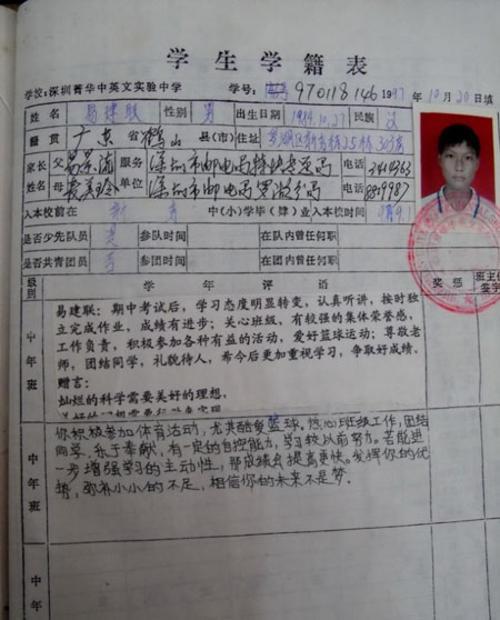 学生学籍表
学校:深圳菁华中英文实验中学 学号: 970118146 1997年10月20日填
姓名 易建联 性别 男 出生日期 1984.10.27 民族 汉
籍贯 广东省鹤山县(市) 住址
家长姓名 父 服务单位 深圳市邮电局 电话
母 深圳市邮电局罗湖分局 电话
入本校前在 中(小)学毕(肄)业入本校时间
是否少先队员 参队时间 在队内曾任何职
是否共青团员 参团时间 在团内曾任何职
级别 学年评语 奖惩 班主任签字
中年班
易建联:期中考试后,学习态度明显转变,认真听讲,按时独
立完成作业,成绩有进步;关心班级,有较强的集体荣誉感,
工作负责,积极参加各种有益的活动,爱好篮球运动;尊敬老
师,团结同学,礼貌待人,希今后更加重视学习,争取好成绩。
赠言:
灿烂的科学需要美好的理想,
中年班
你积极参加体育活动,尤其酷爱篮球。热心班级工作,团结
同学,乐于奉献,有一定的自控能力,学习较以前努力。若能进
一步增强学习的主动性,那成绩会提高更快。发挥你的优
势,弥补小小的不足,相信你的未来不是梦。
中年